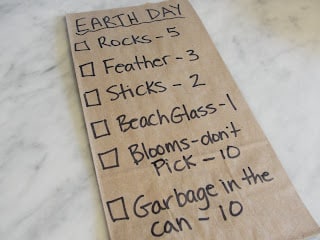 EARTH DAY
Rocks - 5
Feather - 3
Sticks - 2
Beach Glass - 1
Blooms - don't
Pick - 10
Garbage in the
can - 10